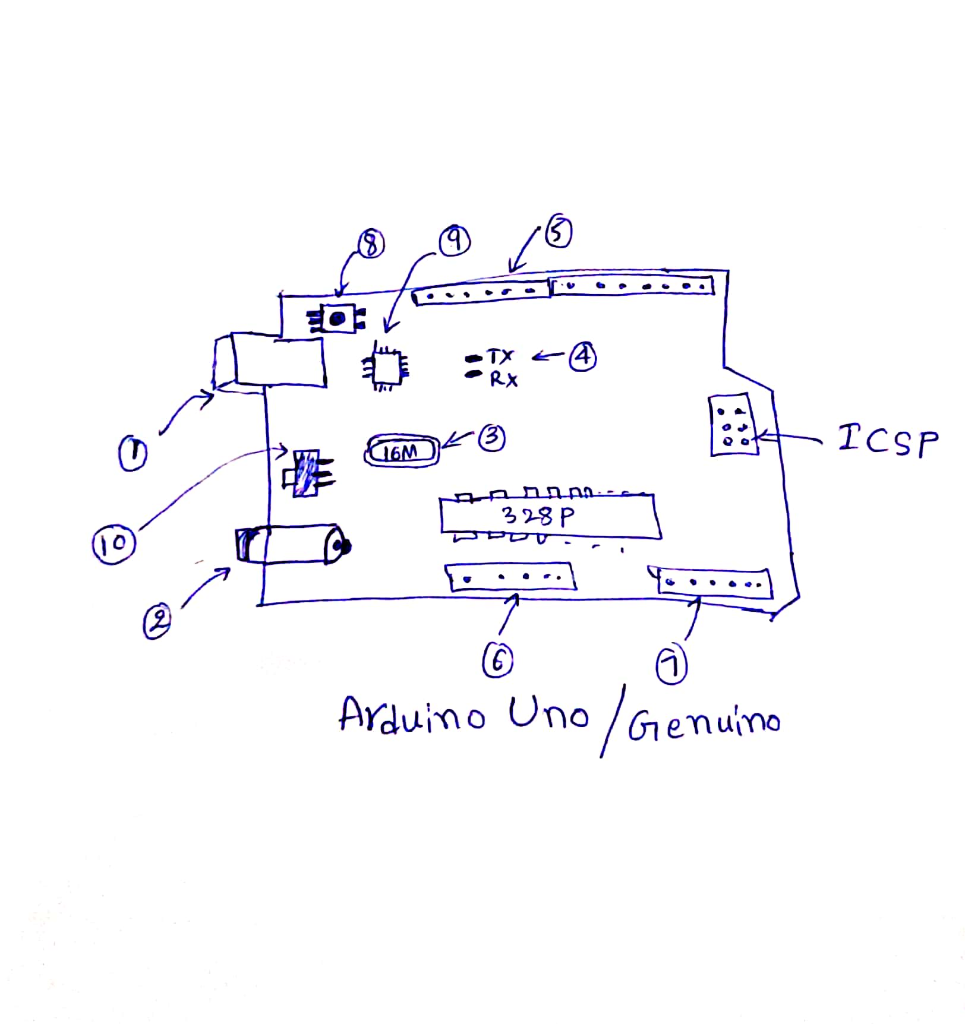 5
8
9
TX
4
RX
1
16M
3
ICSP
328P
10
2
6
7
Arduino Uno / Genuino